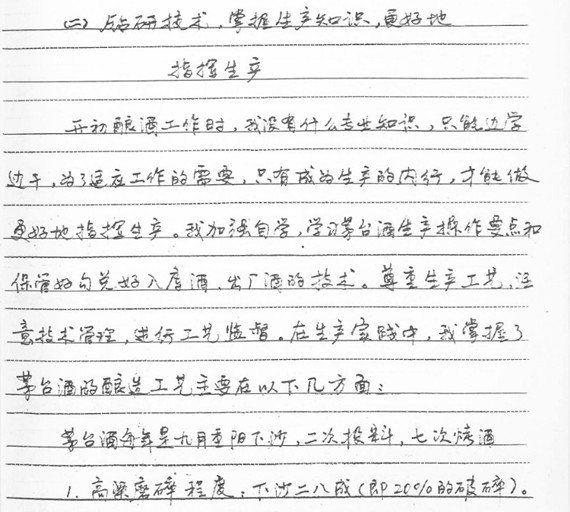 (二)钻研技术,掌握生产知识,更好地
指挥生产
开初酿酒工作时,我没有什么专业知识,只能边学
边干,为了适应工作的需要,只有成为生产的内行,才能做
更好地指挥生产。我加强自学,学习茅台酒生产操作要点和
保管好勾兑好入库酒、出厂酒的技术。尊重生产工艺,注
意技术管理,进行工艺监督。在生产实践中,我掌握了
茅台酒的酿造工艺主要在以下几方面:
茅台酒每年是九月重阳下沙,二次投料,七次烤酒
1. 高粱磨碎程度:下沙二八成(即20%的破碎)。